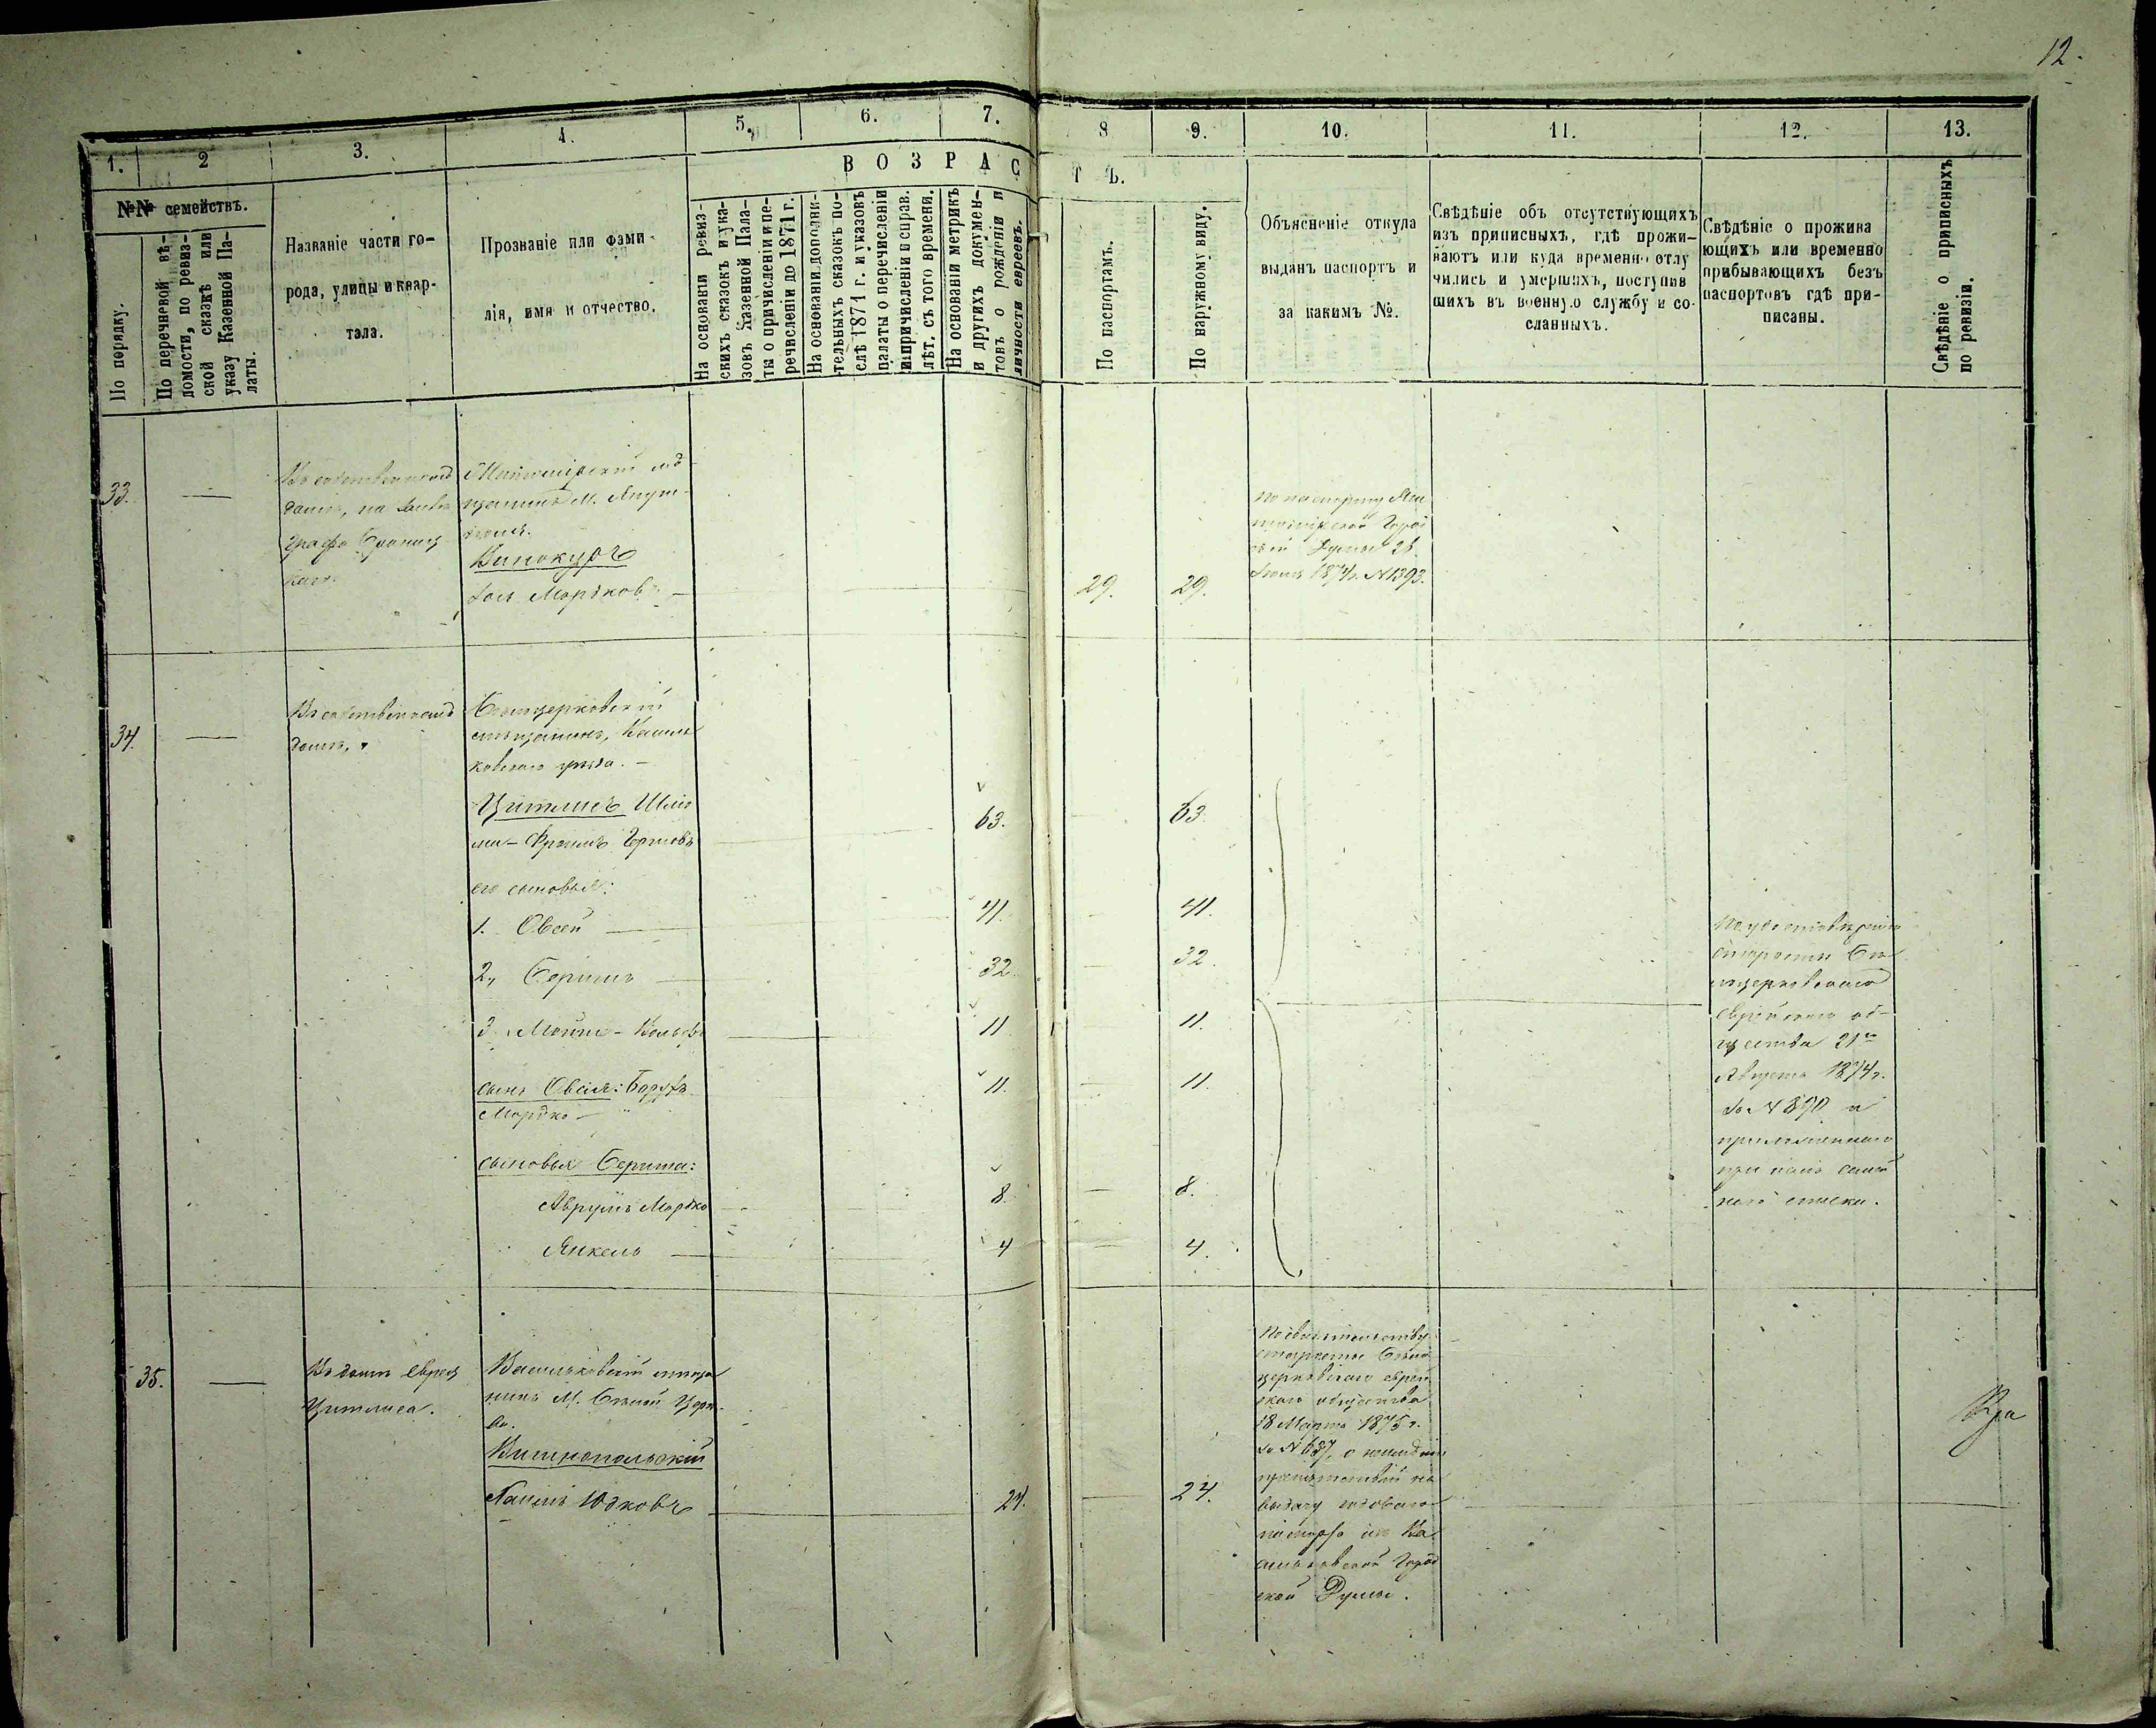 12.
1.
2
3.
4.
5.
6.
7.
8
9.
10.
11.
12.
13.
В О З Р А С Т Ъ.
№№ семействъ.
По порядку.
По перечневой вѣ-
домости, по ревиз-
ской сказкѣ или
указу Казенной Па-
латы.
Названіе части го-
рода, улицы и квар-
тала.
Прозваніе или фами-
лія, имя и отчество.
На основаніи ревиз-
скихъ сказокъ и ука-
зовъ Казенной Пала-
ты о причисленіи и пе-
речисленіи до 1871 г.
На основаніи дополни-
тельныхъ сказокъ по-
слѣ 1871 г. и указовъ
палаты о перечисленіи
и причисленіи и справ.
лѣт. съ того времени.
На основаніи метрикъ
и другихъ докумен-
товъ о рожденіи и
личности евреевъ.
По паспортамъ.
По наружному виду.
Объясненіе откуда
выданъ паспортъ и
за какимъ №.
Свѣдѣніе объ отсутствующихъ
изъ приписныхъ, гдѣ прожи-
ваютъ или куда временно отлу
чились и умершихъ, поступив
шихъ въ военную службу и со-
сланныхъ.
Свѣдѣніе о прожива
ющихъ или временно
прибывающихъ безъ
паспортовъ гдѣ при-
писаны.
Свѣдѣніе о приписныхъ
по ревизіи.
33.
Въ собственномъ
домѣ, на
графа Браниц
каго.
мѣ
щанинъ М.
Винокуръ
Мордков
29.
29.
По паспорту
Город
ской Думы 28
1874 г. №1393.
34.
Въ собственномъ
домѣ,
Бѣлоцерковскій
мѣщанинъ, Василь
ковскаго уѣзда. —
Цитлисъ Шлио
ма-Фроимъ
63.
63.
его сыновья:
1. Овсей
41.
41.
2, Беришъ
32.
32.
3 Мойше - Вольфъ
11
11.
сынъ Овсія: Борухъ
Мордко
11.
11.
сыновья Бериша:
Аврумъ Мордко
8.
8.
Янкель
4
4.
По удостовѣренію
старосты Бѣ
лоцерковскаго
еврейскаго об-
щества 21го
Августа 1874 г.
за № 890 и
приложеннаго
при немъ семей
наго списка.
35.
Въ домѣ еврея
Цитлиса.
Васильковскій мѣща
нинъ М. Бѣлой Церк-
ви.
Вишнопольскій
Юдковъ
24.
24.
По свидѣтельству
старосты Бѣло
церковскаго еврей
скаго общества
18 Марта 1875 г.
за № 687, о неимѣніи
препятствій на
выдачу годоваго
паспорта изъ Ва
сильковской Город
ской Думы.